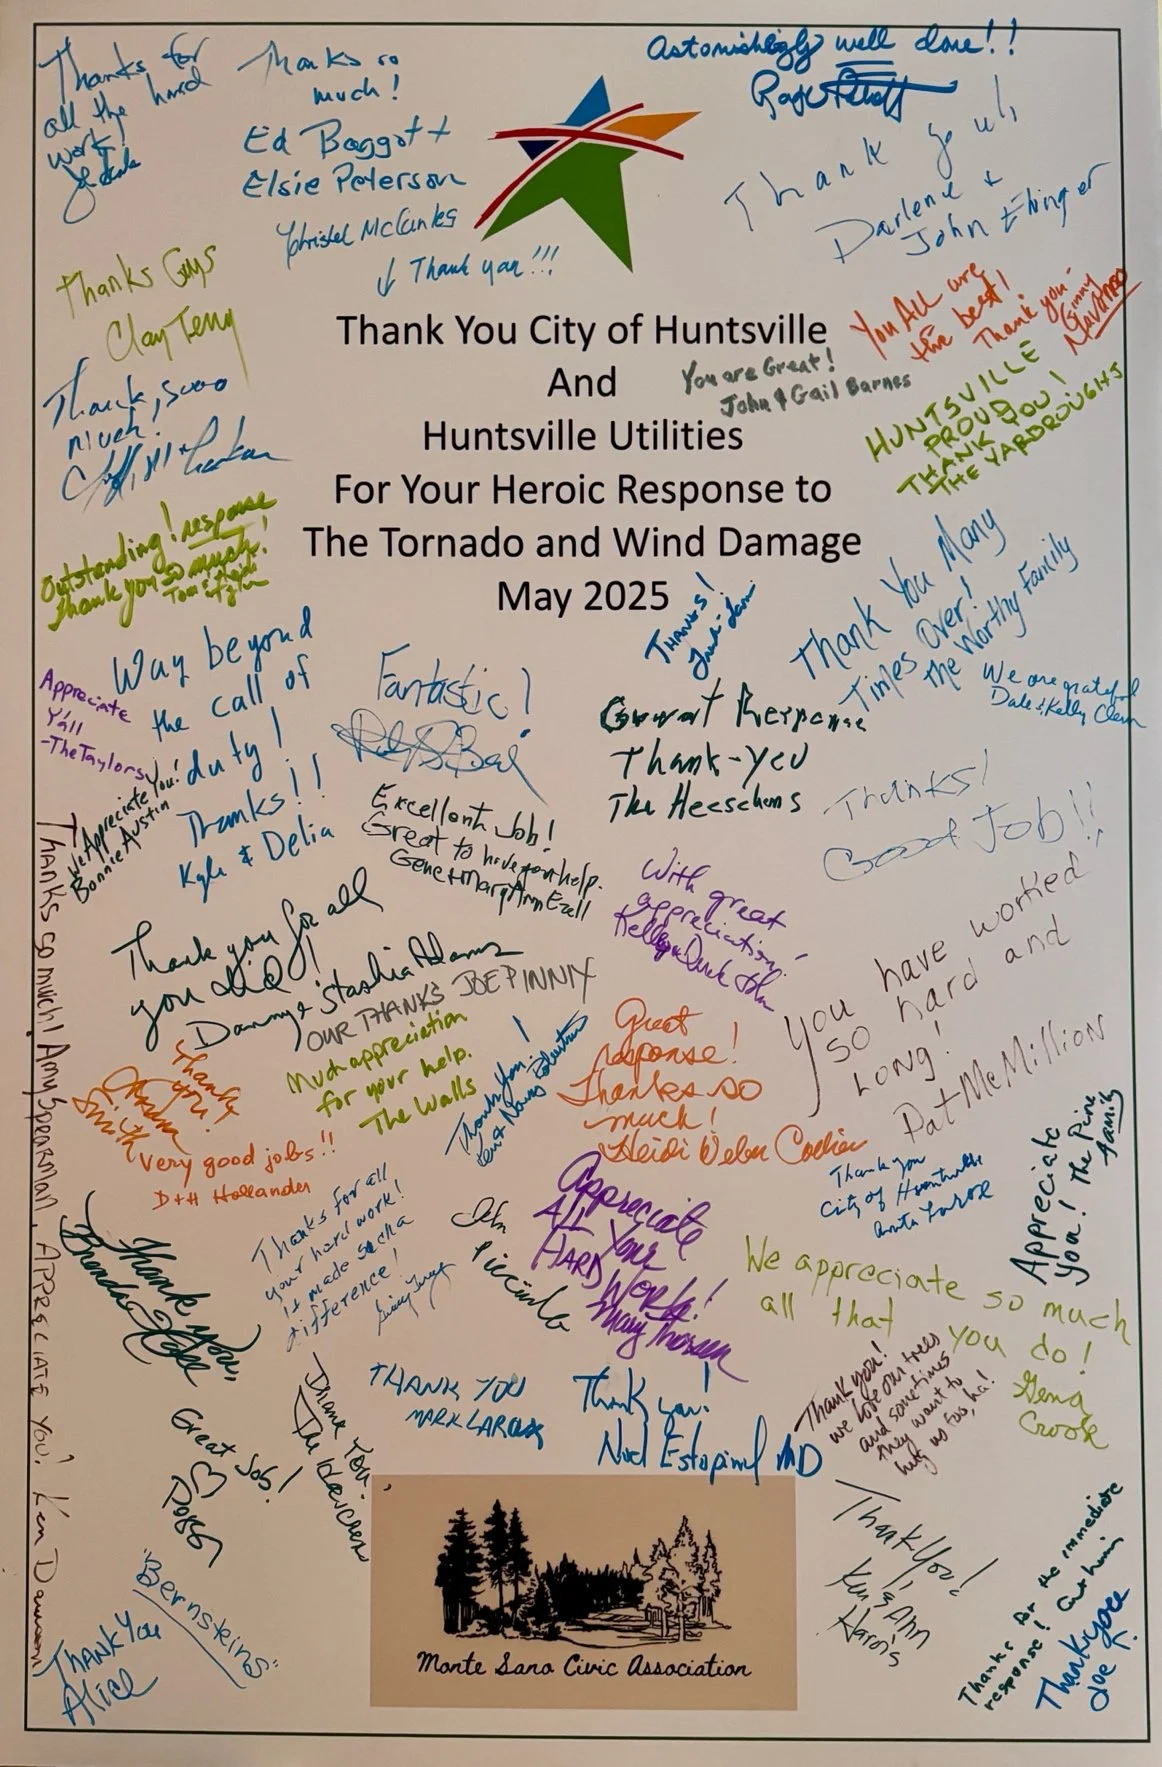 Thanks for
all the hard
work!
Thanks so
much!
Ed Baggot +
Elsie Peterson
Christel McCanks
↓ Thank you!!!
Astonishingly well done!!
Thank you!
Darlene &
John Ebinger
Thanks Guys
Clay Terry
You All are
the best!
Thank you
Ginny
Thank You City of Huntsville
And
Huntsville Utilities
For Your Heroic Response to
The Tornado and Wind Damage
May 2025
You are Great!
John & Gail Barnes
HUNTSVILLE
PROUD
THANK YOU!
THE YARDROUGHS
Thank, sooo
much!
Outstanding! response
thank you so much!
Thanks!
Thank You Many
Times Over!
The Worthy Family
We are grateful
Dale & Kelly
Way beyond
the call of
duty!
Thanks!!
Kyle & Delia
Appreciate
Y'all
-The Taylors
Fantastic!
Great Response
Thank-you
The Heeschens
We Appreciate You!
Bonnie Austin
Excellent Job!
Great to have your help.
Gene + Mary Ann Ezell
Thanks!
Good Job!!
With great
appreciation!
Thank you for all
you did!
Danny & Stashia Adams
OUR THANKS JOE PINNIX
You have worked
so hard and
LONG!
Pat McMillion
Much appreciation
for your help.
The Walls
Thank You!
Great
response!
Thanks so
much!
Heidi Weber Collier
Thank
you!
Smith
Very good jobs!!
D+H Hollander
Thank you
City of Huntsville
Anita LaRoe
Appreciate
you! The Pine
family
Thanks for all
your hard work!
It made such a
difference!
Appreciate
All Your
Hard Work!
Mary
Thank you,
Brenda
We appreciate so much
all that you do!
Gena
Crook
THANK YOU
Thank you!
Noel Estopinal MD
Thank you!
we love our trees
and sometimes
they want to
hug us too, ha!
Thank You.
Great Job!
Thanks so much! Amy Spearman, APPRECIATE YOU! Ken
"Bernsteins"
THANK YOU
Alice
Thank You!
Ken & Ann
Harris
Thanks for the immediate
response!
Thank you
Joe T.
Monte Sano Civic Association